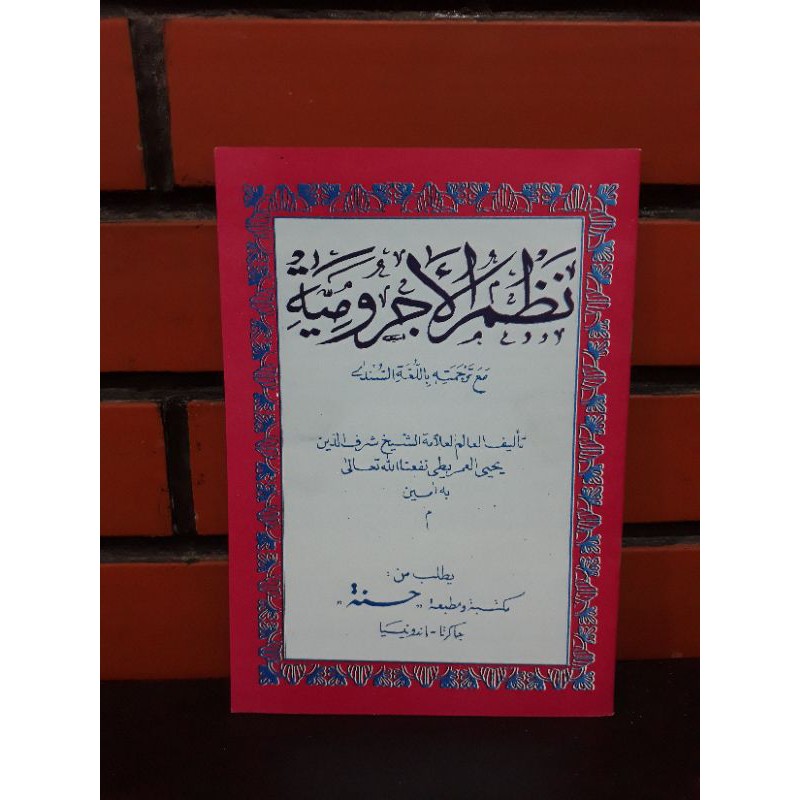 نَظْمُ الْأَجُرُّومِيَّةِ
مَعَ تَرْجَمَتِهِ بِاللُّغَةِ السُّنْدَاوِى
تأليف العالم العلامة الشيخ شرف الدين
يحيى العمريطى نفعنا الله تعالى
به امين
م
يطلب من :
مكتبة ومطبعة "حسنة"
جاكرتا - اندونيسيا